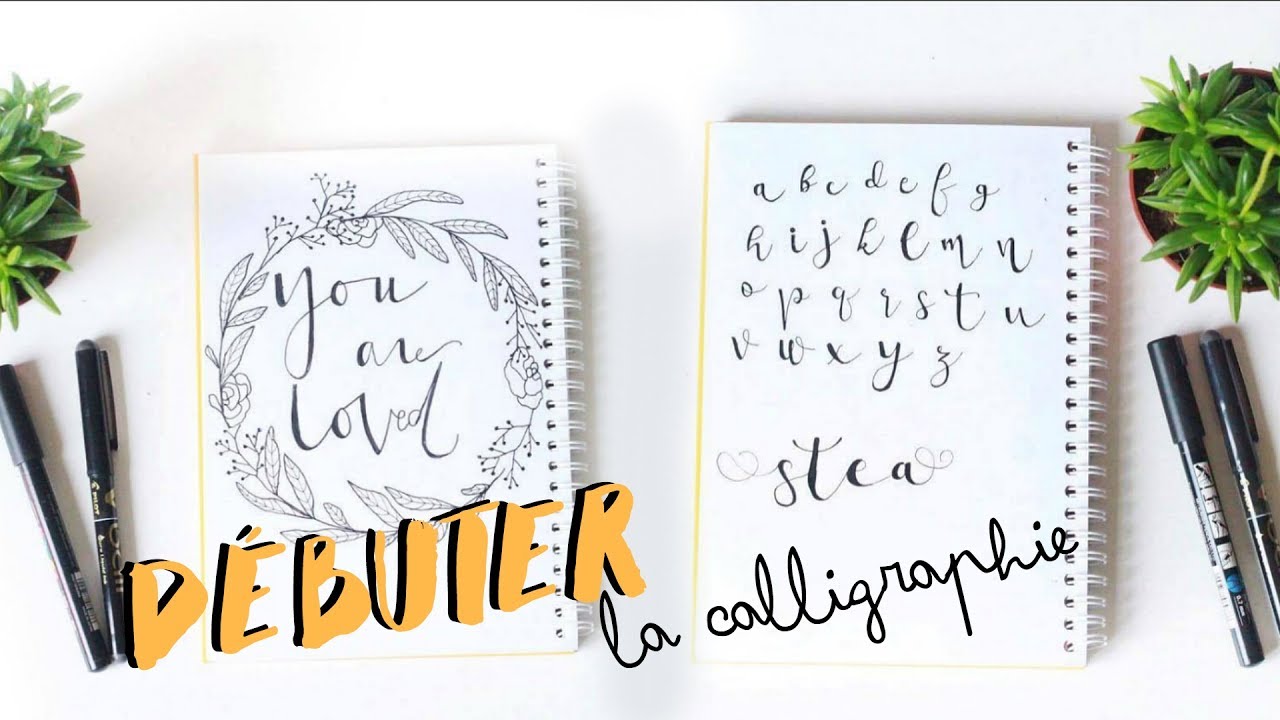 you
are
loved
a b c d e f g
h i j k l m n
o p q r s t u
v w x y z
stea
DÉBUTER
la calligraphie
PILOT